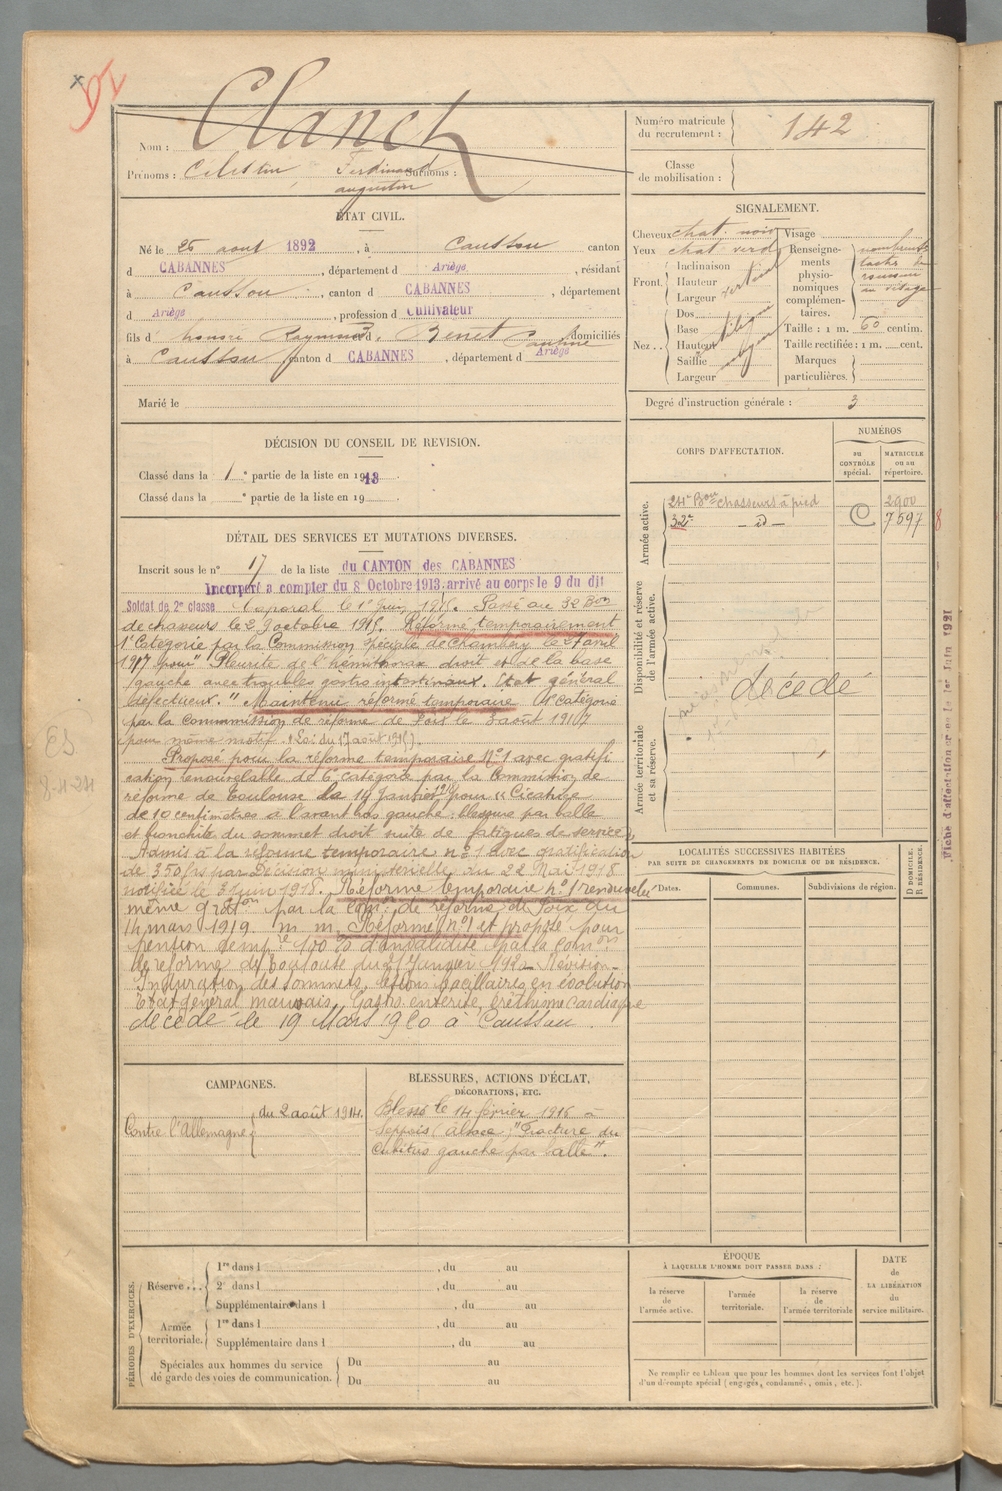 92
Clanch
Nom :
Prénoms : Célestin Ferdinand Surnoms :
augustin
ÉTAT CIVIL.
Né le 26 aout 1892, à Caussou canton
d CABANNES, département d Ariège, résidant
à Caussou, canton d CABANNES, département
d Ariège, profession d Cultivateur
fils d honoré Raymond et d Benet Pauline domiciliés
à Caussou canton d CABANNES, département d Ariège
Marié le
DÉCISION DU CONSEIL DE REVISION.
Classé dans la 1e partie de la liste en 1913.
Classé dans la e partie de la liste en 19
DÉTAIL DES SERVICES ET MUTATIONS DIVERSES.
Inscrit sous le n° 17 de la liste du CANTON des CABANNES
Incorporé a compter du 8 Octobre 1913. arrivé au corps le 9 du dit
Soldat de 2e classe Caporal le 1er juin 1915. Passé au 32 Bon
de chasseurs le 29 octobre 1915. Réformé temporairement
1e Catégorie par la Commission Spéciale de Chambéry le 27 avril
1917 pour " Pleurite de l'hémithorax droit et de la base
gauche avec troubles gastro intestinaux. Etat général
défectueux." Maintenu réformé temporaire 1e catégorie
par la Commmission de réforme de Foix le 3 août 1917
pour même motif. (Loi du 17 août 1915).
Proposé pour la réforme temporaire N° 1 avec gratifi
cation renouvelable de 6e catégorie par la Commission de
réforme de Toulouse le 14 Janvier 1918 pour " Cicatrice
de 10 centimètres à l'avant bras gauche. blessure par balle
et bronchite du sommet droit suite de fatigues de service
Admis à la réforme temporaire n° 1 avec gratification
de 350 frs par Décision ministérielle du 22 Mai 1918
notifiée le 3 juin 1918. Réforme temporaire n° 1 renouvelée
même gratton par la Comon de réforme de Foix du
14 mars 1919. m. m. Réformé n° 1 et proposé pour
pension 100 % d'invalidité par la Comon
de réforme de Toulouse du 21 Janvier 1920 Révision
Induration des sommets, lésions bacillaires en évolution
Etat général mauvais, Gastro entérite, éréthisme cardiaque
décédé le 19 Mars 1920 à Caussou.
CAMPAGNES.
Contre l'Allemagne { du 2 août 1914.
BLESSURES, ACTIONS D'ÉCLAT,
DÉCORATIONS, ETC.
Blessé le 14 février 1916 à
Seppois (Alsace) "Fracture du
Cubitus gauche par balle".
PÉRIODES D'EXERCICES.
Réserve ...
1re dans l , du au
2e dans l , du au
Supplémentaire dans l , du au
Armée territoriale.
1re dans l , du au
Supplémentaire dans l , du au
Spéciales aux hommes du service
de garde des voies de communication.
Du au
Du au
Numéro matricule
du recrutement : 142
Classe
de mobilisation :
SIGNALEMENT.
Cheveux chat. noir
Yeux chat verd
Front. Inclinaison
Hauteur
Largeur
vertical
Nez .. Dos
Base
Hauteur
Saillie
Largeur
Visage
Renseigne-
ments
physio-
nomiques
complémen-
taires.
nombreuses
taches de
rousseur
au visage
Taille : 1 m. 60 centim.
Taille rectifiée : 1 m. cent.
Marques
particulières.
Degré d'instruction générale : 3
CORPS D'AFFECTATION.
NUMÉROS
au
CONTRÔLE
spécial.
MATRICULE
ou au
répertoire.
Armée active.
24e Bon chasseurs à pied 2900
32e — d — 7597
Disponibilité et réserve
de l'armée active.
décédé
Armée territoriale
et sa réserve.
Fiche d'affectation ce 1er Juin 1921
LOCALITÉS SUCCESSIVES HABITÉES
PAR SUITE DE CHANGEMENTS DE DOMICILE OU DE RÉSIDENCE.
Dates.
Communes.
Subdivisions de région.
D DOMICILE.
R RÉSIDENCE.
ÉPOQUE
À LAQUELLE L'HOMME DOIT PASSER DANS :
la réserve
de
l'armée active.
l'armée
territoriale.
la réserve
de
l'armée territoriale
DATE
de
LA LIBÉRATION
du
service militaire.
Ne remplir ce tableau que pour les hommes dont les services font l'objet
d'un décompte spécial (engagés, condamnés, omis, etc.).